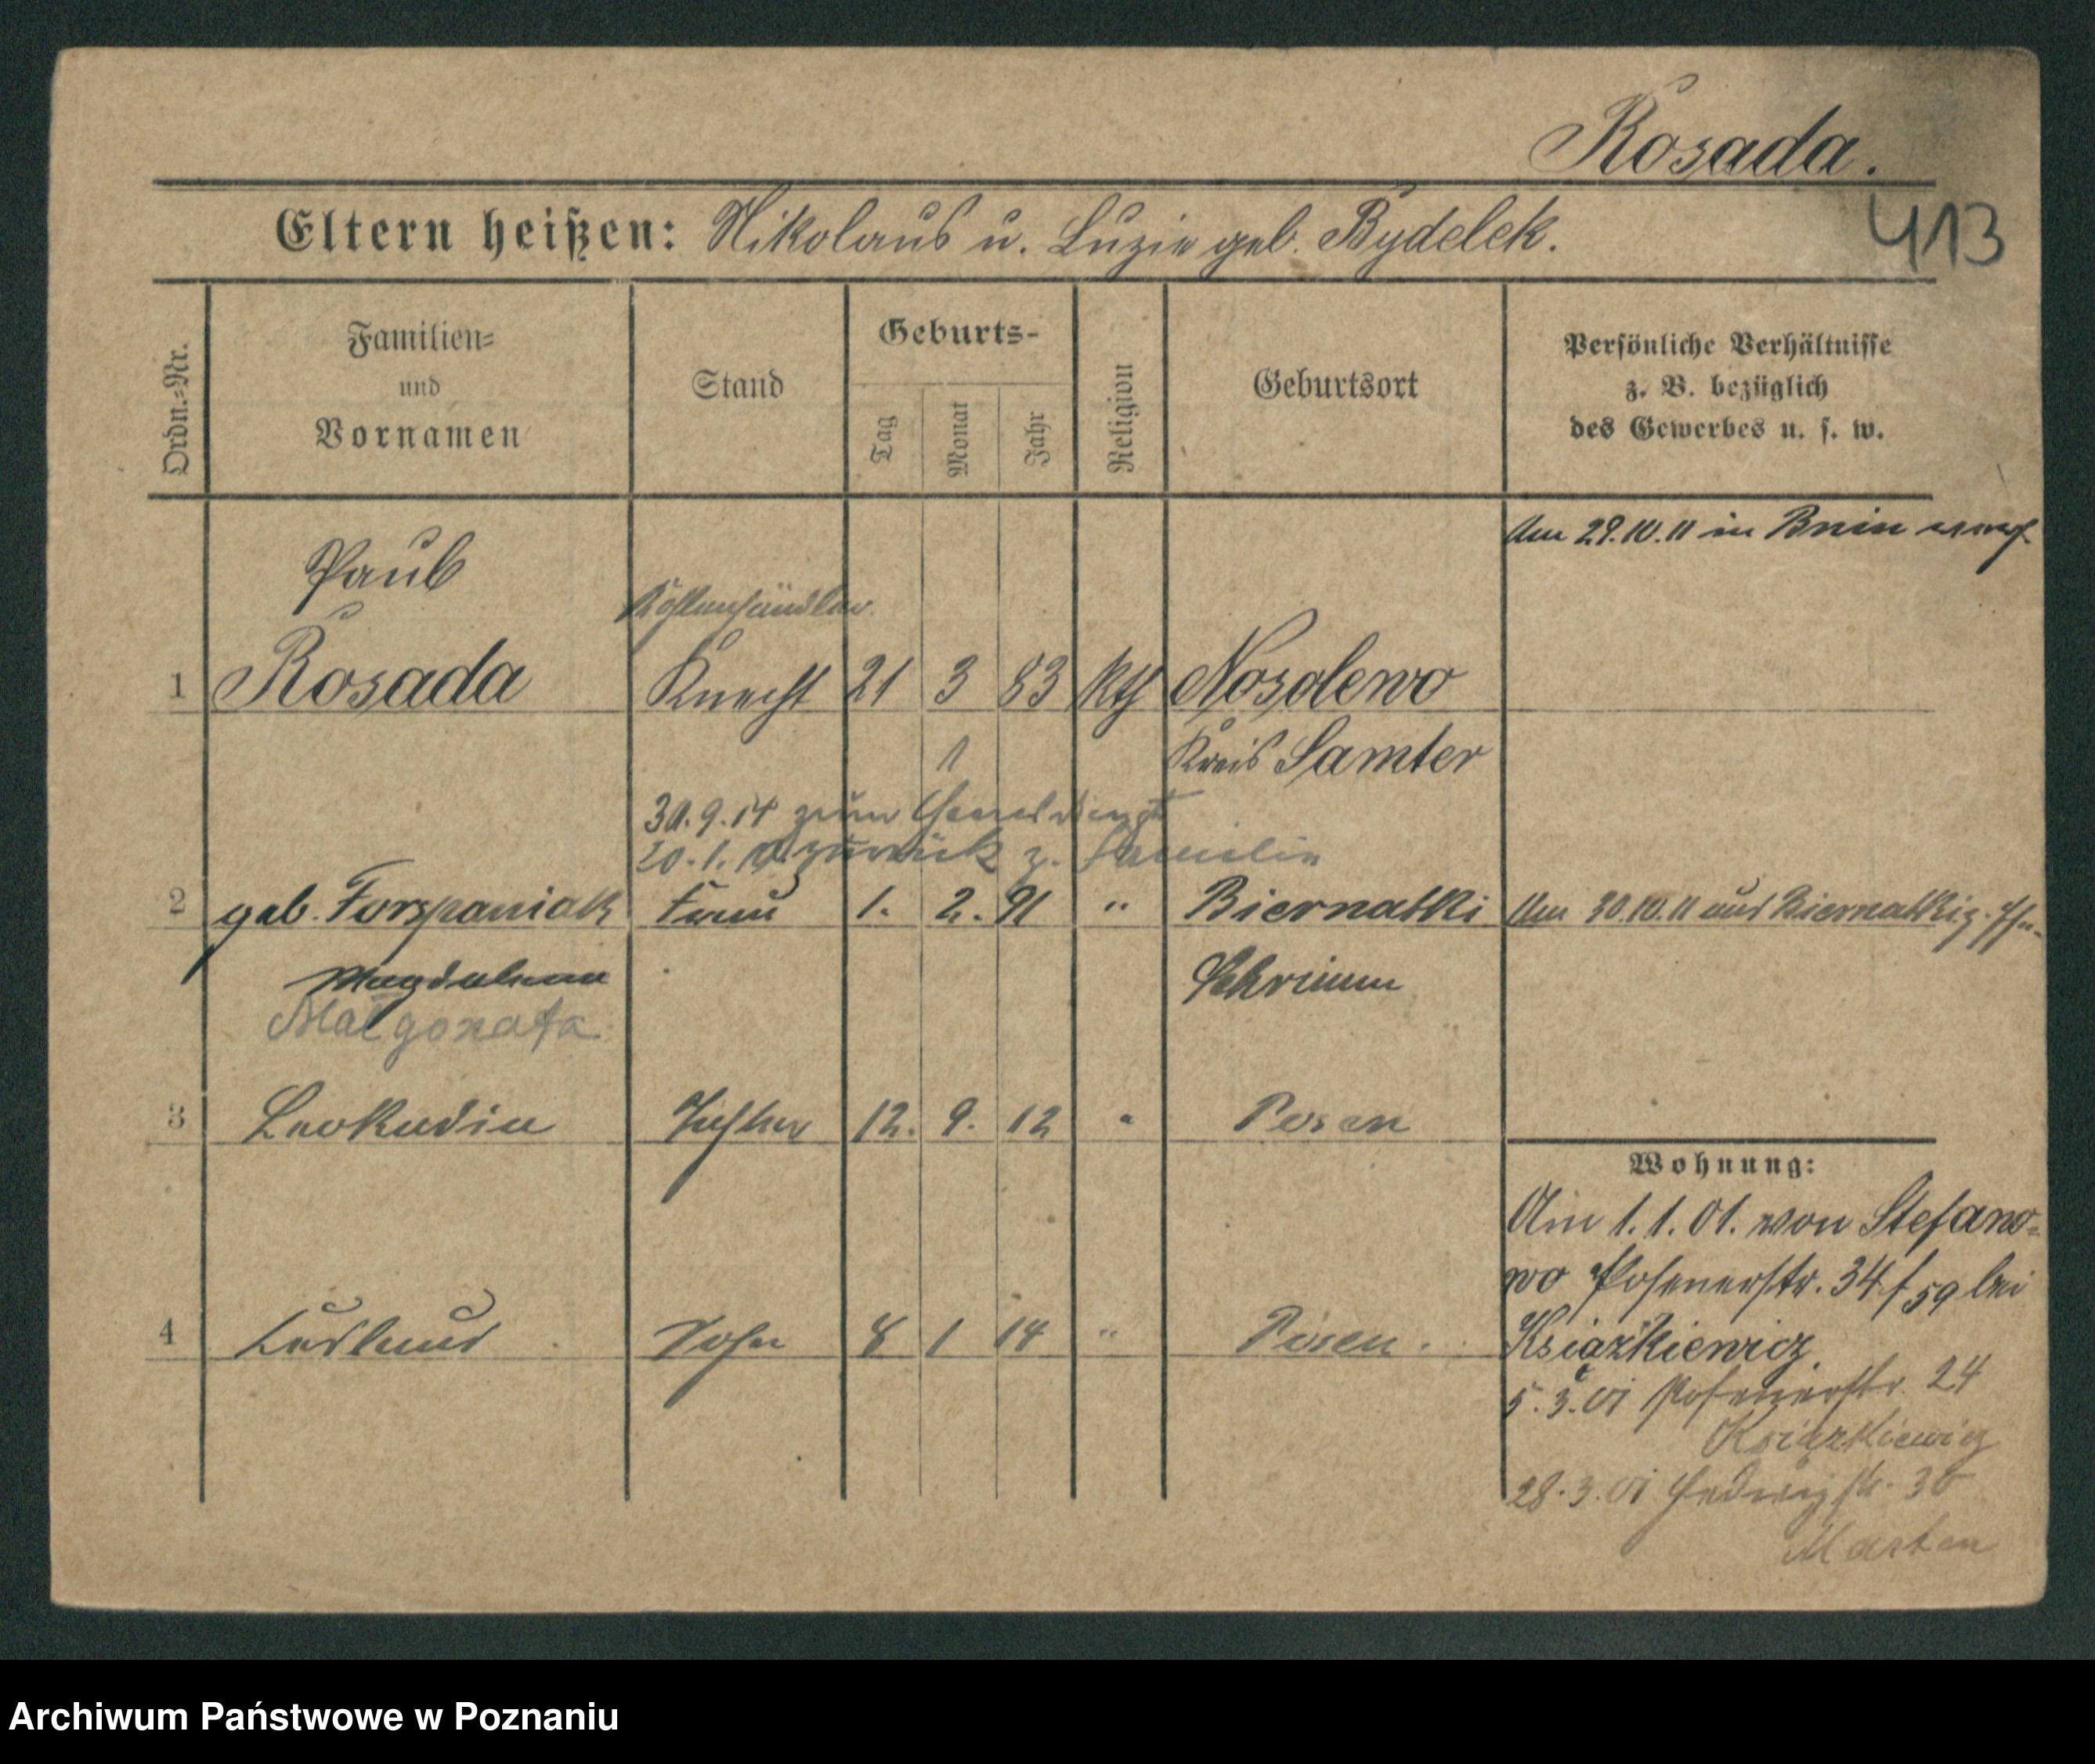 Rosada.
413
Eltern heißen: Nikolaus u. Luzie geb. Bydelek.
Ordn.-Nr.
Familien-
und
Vornamen
Stand
Geburts-
Tag
Monat
Jahr
Religion
Geburtsort
Persönliche Verhältnisse
z. B. bezüglich
des Gewerbes u. s. w.
Am 29.10.11 in Bnin
Paul
Kohlenhändler
1 Rosada Knecht 21 3 83 kth Nosolewo
1 Kreis Samter
30.9.14 zum
20.1. zurück z. Familie
2 geb. Forspaniak Frau 1. 2. 91 " Biernatki Am 30.10.11 aus Biernatki z.
Magdalena Schrimm
Małgorzata
3 Leokadia Tochter 12. 9. 12 " Posen
Wohnung:
Am 1.1.01. von Stefano-
wo Posenerstr. 34 f 59 bei
4 Sohn 8 1 14 " Posen.
Książkiewicz.
5.3.01 Posenerstr. 24
Książkiewicz
28.3.01 Hedwigstr. 36
Marten
Archiwum Państwowe w Poznaniu